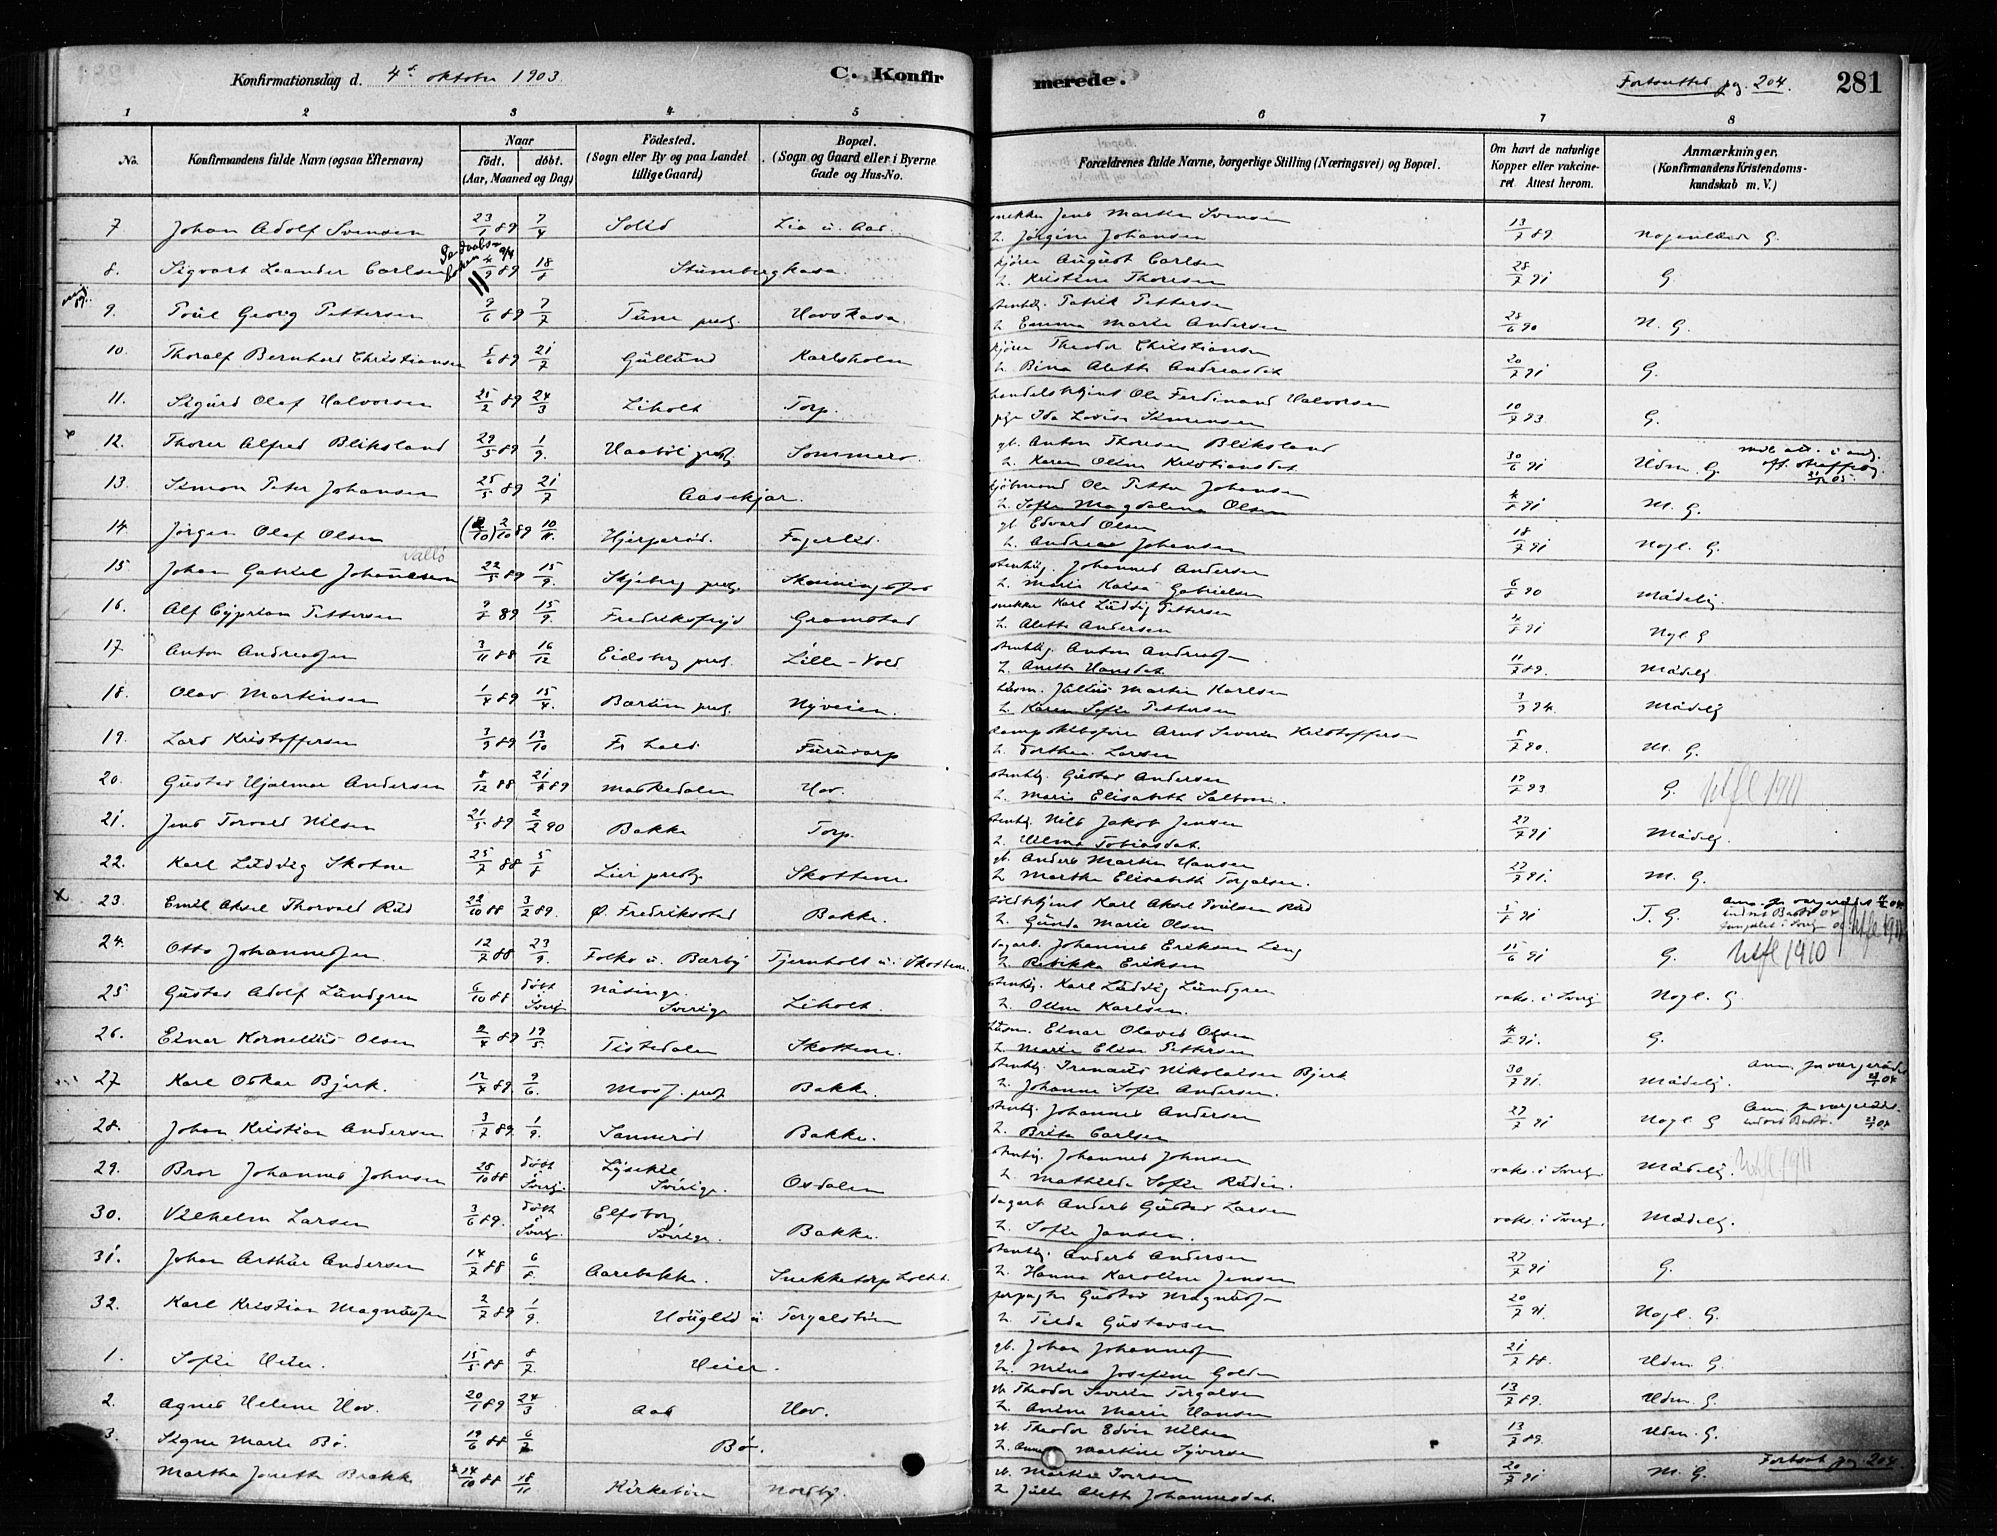 Konfirmationsdag d. 4de oktober 1903. C. Konfirmerede. Fortsættes pag. 204. 281
1 2 3 4 5 6 7 8
No. Konfirmandens fulde Navn (ogsaa Efternavn) Naar født. døbt. (Aar, Maaned og Dag) Födested. (Sogn eller By og paa Landet tillige Gaard) Bopæl. (Sogn og Gaard eller i Byerne Gade og Hus-No. Forældrenes fulde Navne, borgerlige Stilling (Næringsvei) og Bopæl. Om havt de naturlige Kopper eller vakcineret Attest herom. Anmærkninger. (Konfirmandens Kristendomskundskab m. V.)
7 Johan Adolf Svensen 23/1 89 7/4 Solid Lia u. Aas snekker Jens Martin Svensen
h. Jørgine Johansen 13/7 89 Nogenlunde G.
8. Sigvart Leander Carlsen 4/9 89 18/8 Stumbergkasa. kjører August Carlsen
h. Kristine Thoresen 28/7 91 G.
9. Poul Georg Pettersen 7/6 89 7/7 Tune prest. Hovskasa. stenhg. Patrik Pettersen
h. Emma Marie Andersen 28/6 90 N. G.
10. Thoralf Bernhard Christiansen 5/6 89 21/7 Gullund Karlsholm kjører Theodor Christiansen
h. Bina Alette Andreasdat 20/7 91 G.
11. Sigurd Olaf Halvorsen 25/2 89 24/3 Liholt Torp. handelsbetjent Ole Ferdinand Halvorsen
pige Ida Lovise Simensen 10/7 93 G.
x 12. Thorer Alfred Bliksland 29/5 89 1/9. Haabøl prest. Sommero. gb. Anton Thoresen Bliksland
h. Karen Oline Kristiansdat. 30/6 91 Udm. G.
13. Simon Peter Johansen 25/5 89 21/7 Aasekjær. kjøbmand Ole Petter Johansen
h. Sofie Magdalena Olsen 4/7 91 M. G.
14. Jørgen Olaf Olsen 2/10 89 10/11. Hjerperød. Fagerlid. gb. Edvard Olsen
h. Andrea Johansen 18/7 91 Nogl. G.
Vallø
15 Johan Gabriel Johannesen 22/5 89 15/9. Skjeberg prest. Skaningsfos stenhug. Johannes Andersen
h. Marie Kaisa Gabrielsen 6/8 90 Maadelig.
16. Alf Cyprian Pettersen 7/8 89 15/9. Fredriksfryd Gramstad snekker Karl Ludvig Pettersen
h. Alette Andersen 4/8 91 Ngl G
17 Anton Andreassen 3/11 88 16/12 Eidsberg prest. Lille-Vold stenhug. Anton Andreassen
h. Anette Hansdat. 11/7 89. Maadelig
18. Olav Martinsen 1/4 89 15/4. Bærum prest. Nyveien. husm. Julius Martin Karlsen
h. Karen Sofie Pettersen 3/9 94. Maadelig
19. Lars Kristoffersen 3/9 89 13/10 Fr.hald. Furutorp Arnt Severin Kristoffersen
h. Dorthea Larsen 5/7 90. M. G.
20. Gustav Hjalmar Andersen 8/12 88 21/4 89 Moskedalen Hov. stenhug. Gustav Andersen
h. Marie Elisabeth Saltom. 17/8 93 G. Utfl 1911
21. Jens Torvald Nilsen 21/5 89 2/2 90 Bakke Torp. stenhug. Nils Jakob Jensen
h. Velma Tobiasdat. 27/7 91 Maadelig.
22. Karl Ludvig Skotne 25/7 88 5/8 Lier prestg. Skottene gb. Anders Martin Hansen
h. Marthe Elisabeth Torgalsen. 27/7 91. M. G.
x 23. Emil Aksel Thorvald Rud 22/10 88 3/2 89. Ø. Fredrikstad Bakke. Karl Aksel Poulsen Rud
h. Gunda Marie Olsen 5/8 91 T. G.
24. Otto Johannessen 12/7 88 23/9. Folko u. Bærby Tjernholt u. Skottene. dagarb. Johannes Eriksen Leng
h. Rebikka Eriksen 15/6 91 G. Utfl 1910 Utfl 1911
25 Gustav Adolf Lundgren 6/10 88 døbt i Sverig Näsinge Sverige Liholt. stenhug. Karl Ludvig Lundgren
h. Oline Karlsen. vaks. i Sverig Nogl. G.
26. Einar Kornelius Olsen 2/4 89 19/5. Tistedalen Skottene. husm. Einar Olaves Olsen
h. Marie Elise Pettersen 4/8 91. G.
27 Karl Oskar Bjerk. 12/4 89. 9/6. Moss. prest Bakke. stenhug. Irenæus Nikolaisen Bjerk
h. Johanne Sofie Andersen. 30/7 91. Maadelig. Anm. for værgeraadet
28. Johan Kristian Andersen 3/7 89. 1/9. Sannerød Bakke. stenhug. Johannes Andersen
h. Brita Carlsen 27/7 91 Nogl G Anm. for værgeraad.
29. Bror Johannes Johnsen 28/10 88 døbt i Sverig. Lysekil Sverige. Oxdalen stenhug. Johannes Johnsen
h. Mathilda Sofie Rudin. vaks. i Sverig. Maadelig. Utfl 1911
30. Vilhelm Larsen 3/6 89. døbt i Sverig. Elfsborg Sverige. Bakke. dagarb. Anders Gustav Larsen
h. Sofie Jansen. vaks. i Sverig. Maadelig.
31. Johan Arthur Andersen 14/7 88 6/8. Aarebakke. Snekketorp Lohlt stenhug. Anders Andersen
h. Hanna Karoline Jensen 27/7 91 G.
32. Karl Kristian Magnussen 2/7 89 1/9. Houglid u Torgalsbøen forpagter Gustav Magnussen
h. Tilda Gustavsen 20/7 91. Nogl. G.
1. Sofie Heier. 15/5 88 8/7. Heier. gb. Johan Johannessen
h. Mina Josefine Golden 21/7 88. Udm. G.
2. Agnes Helene Hov. 20/1 89 24/3 Aas Hov. gb. Theodor Severin Torgalsen
h. Anine Marie Hansen 13/7 89. Udm. G.
3. Signe Marie Bø. 19/6 88 6/7 Bø. gb. Theodor Edvin Nilsen
h. Martine Syversen 13/7 89. Udm. G.
Martha Jonette Brække 14/10 88 18/11 Kirkebøen Nordby. gb. Martin Iversen
h. Julie Alette Johannesdat. 20/7 91 M. G. Fortsat pag. 204.